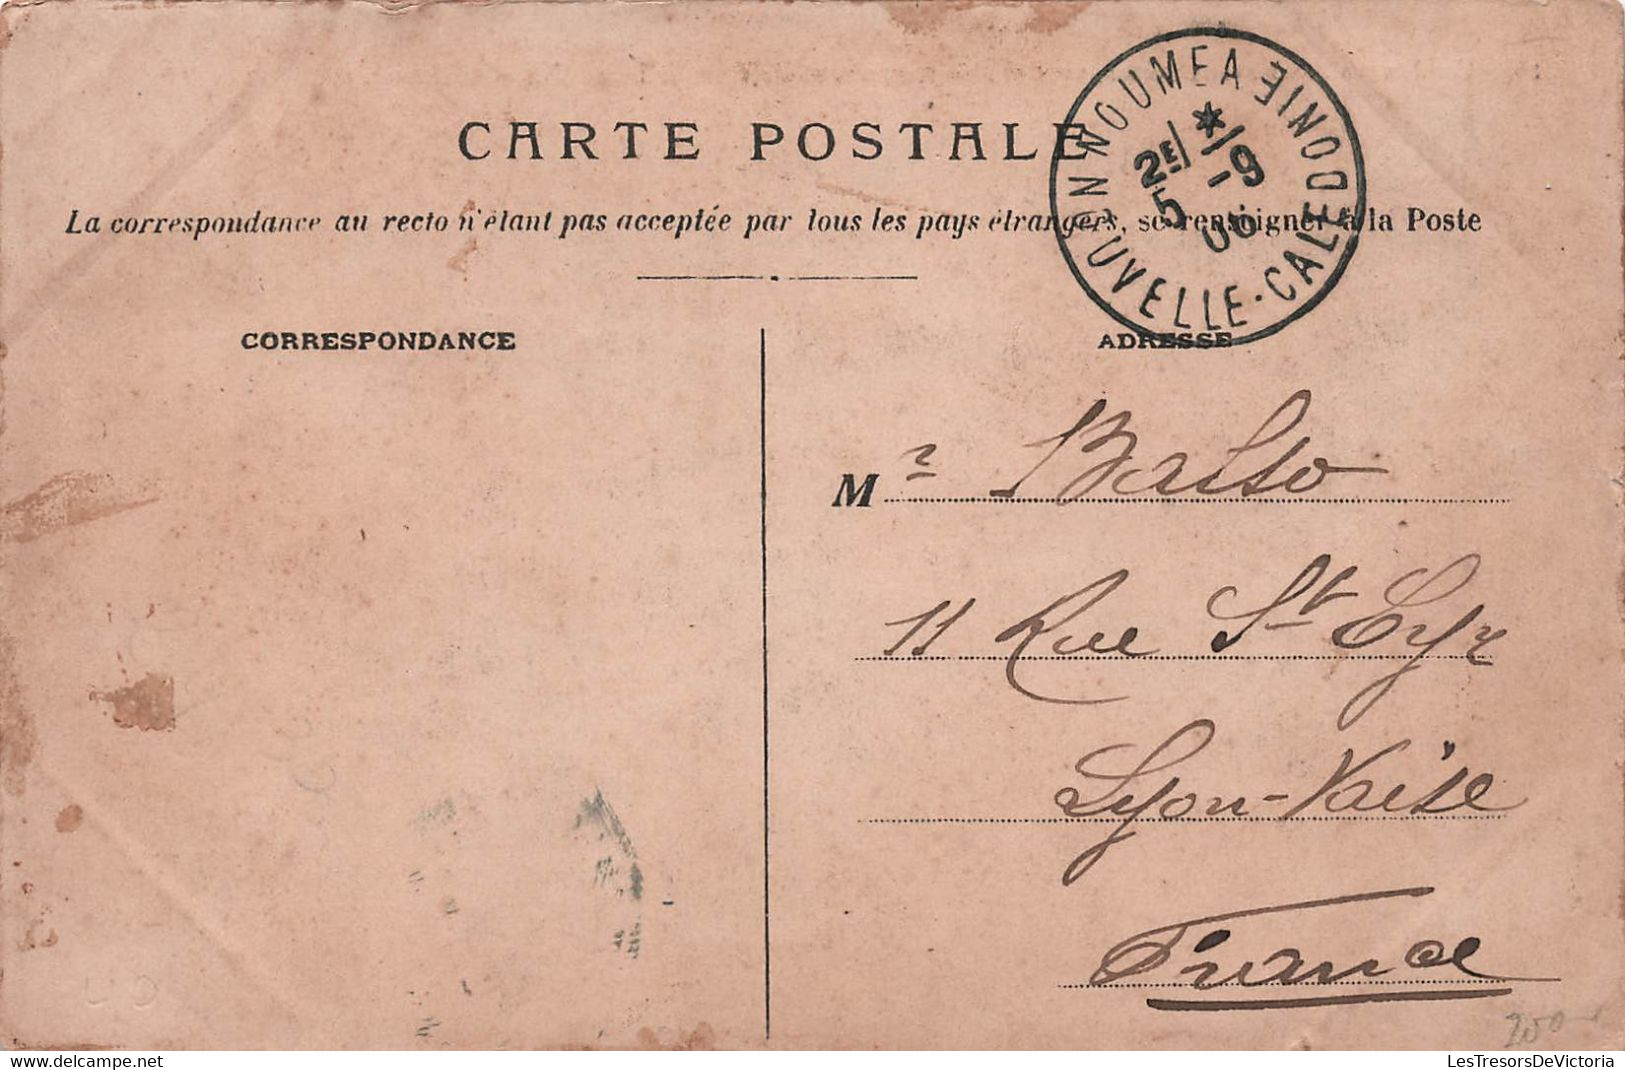 CARTE POSTALE
La correspondance au recto n'étant pas acceptée par tous les pays étrangers, se renseigner à la Poste
NOUMEA
NOUVELLE-CALEDONIE
2E * 5 -9 06
CORRESPONDANCE
ADRESSE
Mr Balso
11 Rue St Cyr
Lyon-Vaise
France
200
LesTresorsDeVictoria